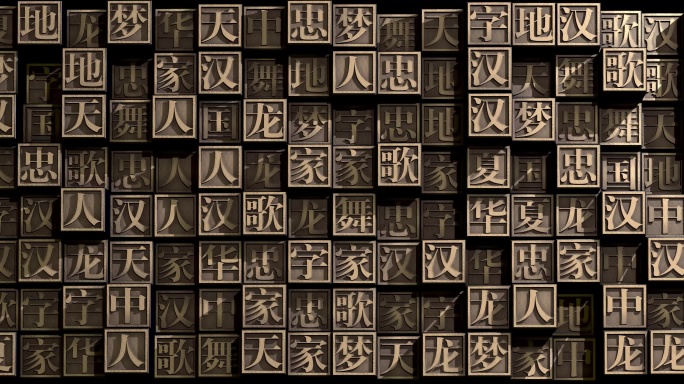 地龙梦华天中忠梦舞天字地汉歌汉
梦字地忠家汉舞地人忠地汉天舞歌歌
汉国天舞人国龙梦字忠地汉梦忠舞天
天忠歌忠人人龙家家歌歌夏国忠国地
字汉人汉人汉歌龙舞忠字华夏龙汉中
汉汉龙天家华忠字家汉汉华忠家中汉
歌字字中汉中家忠歌家字龙人地中家
夏家华人歌舞天家梦天龙梦家中龙龙